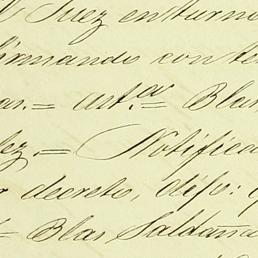 Juez en turno
firmando con te
as.= ant.a= Blas
lez.= Notifica
decreto, dijo: q
= Blas Saldaña